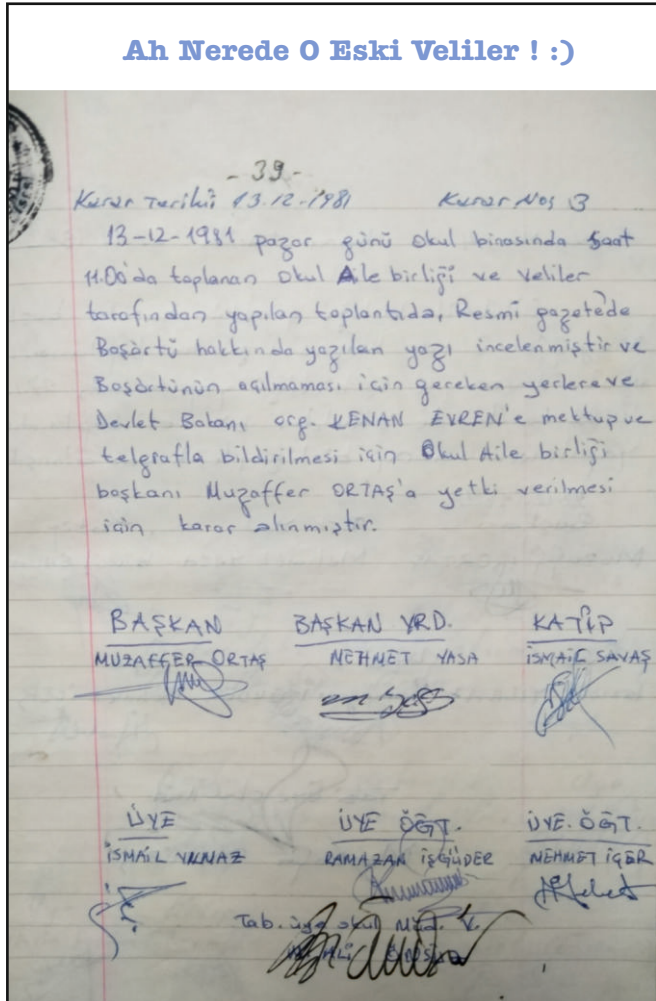 Ah Nerede O Eski Veliler ! :)
- 39 -
Karar Tarihi: 13.12.1981 Karar No: 3
13-12-1981 pazar günü okul binasında Saat
11.00'da toplanan Okul Aile birliği ve Veliler
tarafından yapılan toplantıda, Resmi gazete'de
Başörtü hakkında yazılan yazı incelenmiştir ve
Başörtünün açılmaması için gereken yerlere ve
Devlet Bakanı org. KENAN EVREN'e mektup ve
telgrafla bildirilmesi için Okul Aile birliği
başkanı Muzaffer ORTAŞ'a yetki verilmesi
için karar alınmıştır.
BAŞKAN BAŞKAN YRD. KATİP
MUZAFFER ORTAŞ MEHMET YASA İSMAİL SAVAŞ
ÜYE ÜYE ÖĞT. ÜYE. ÖĞT.
İSMAİL YILMAZ RAMAZAN İŞGÜDER MEHMET İÇER
Tab. üye okul Müd. V.